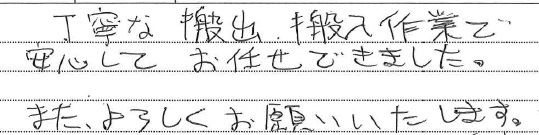 丁寧な搬出、搬入作業で
安心してお任せできました。
また、よろしくお願いいたします。